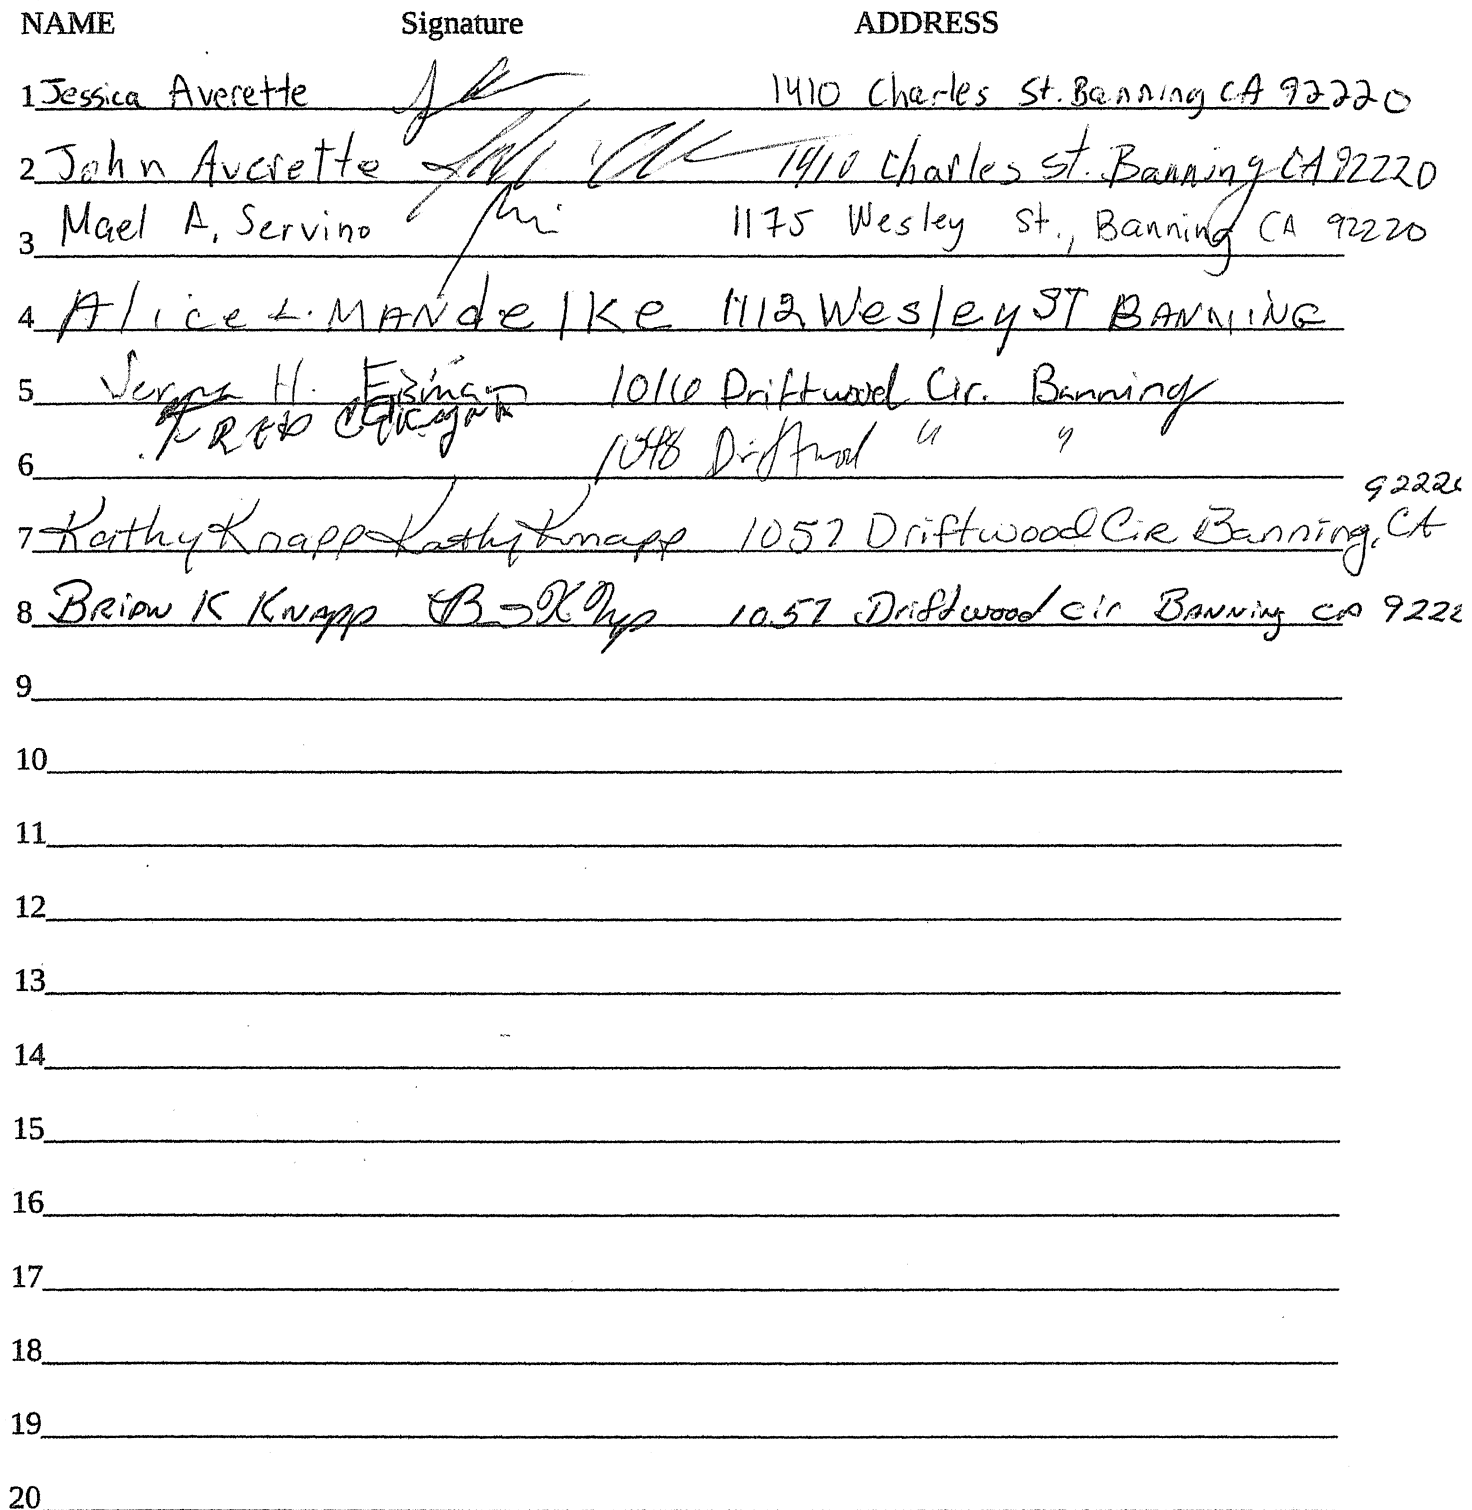 NAME Signature ADDRESS
1 Jessica Averette 1410 Charles St. Banning CA 92220
2 John Averette 1410 Charles St. Banning CA 92220
3 Mael A. Servino 1175 Wesley St., Banning CA 92220
4 Alice L. MANdelke 1112 Wesley ST BANNING
5 Verna H. 1016 Driftwood Cir. Banning
FRED
6 1048 Driftwood " "
92220
7 Kathy Knapp Kathy Knapp 1057 Driftwood Cir Banning, CA
8 BRIAN K KNAPP 1057 Driftwood cir BANNING CA 9222
9
10
11
12
13
14
15
16
17
18
19
20